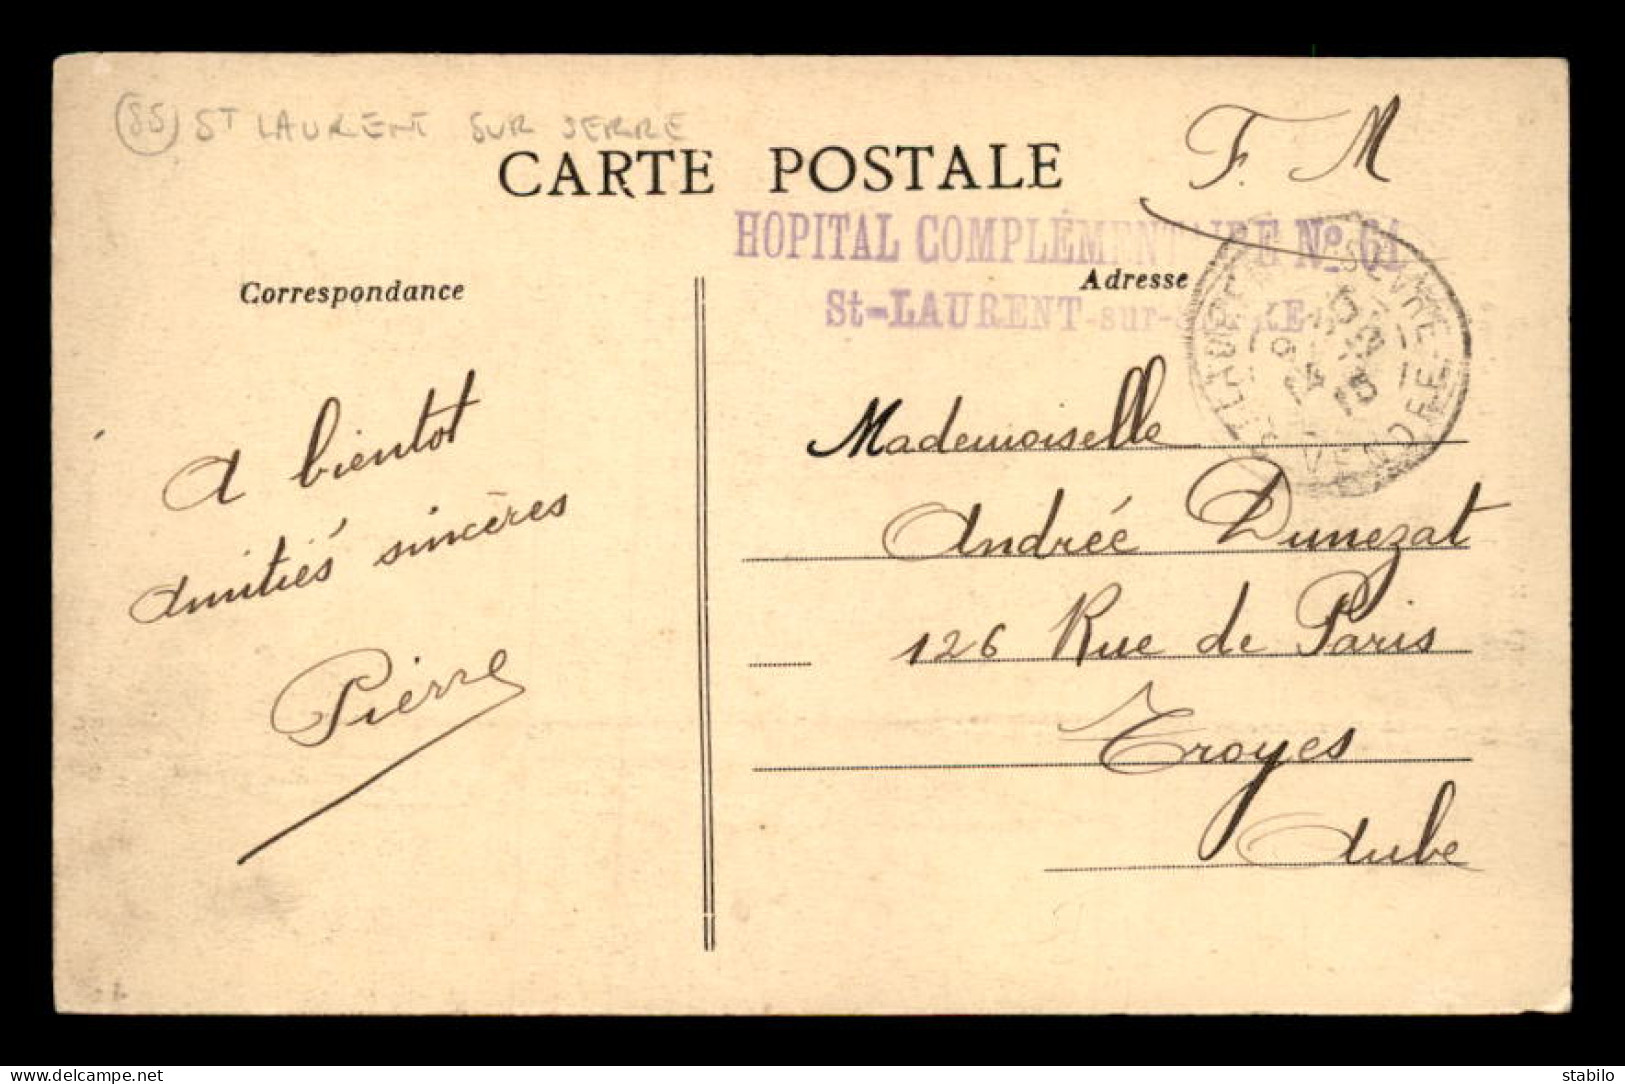 (85) ST LAURENT SUR SERRE
CARTE POSTALE
F. M
HOPITAL COMPLÉMENTAIRE No 61
St-LAURENT-sur-SÈVRE
Correspondance
Adresse
ST LAURENT S. SEVRE
VENDEE
A bientot
Amitiés sincères
Pierre
Mademoiselle
Andrée Dunezat
126 Rue de Paris
Troyes
Aube
www.delcampe.net
stabilo